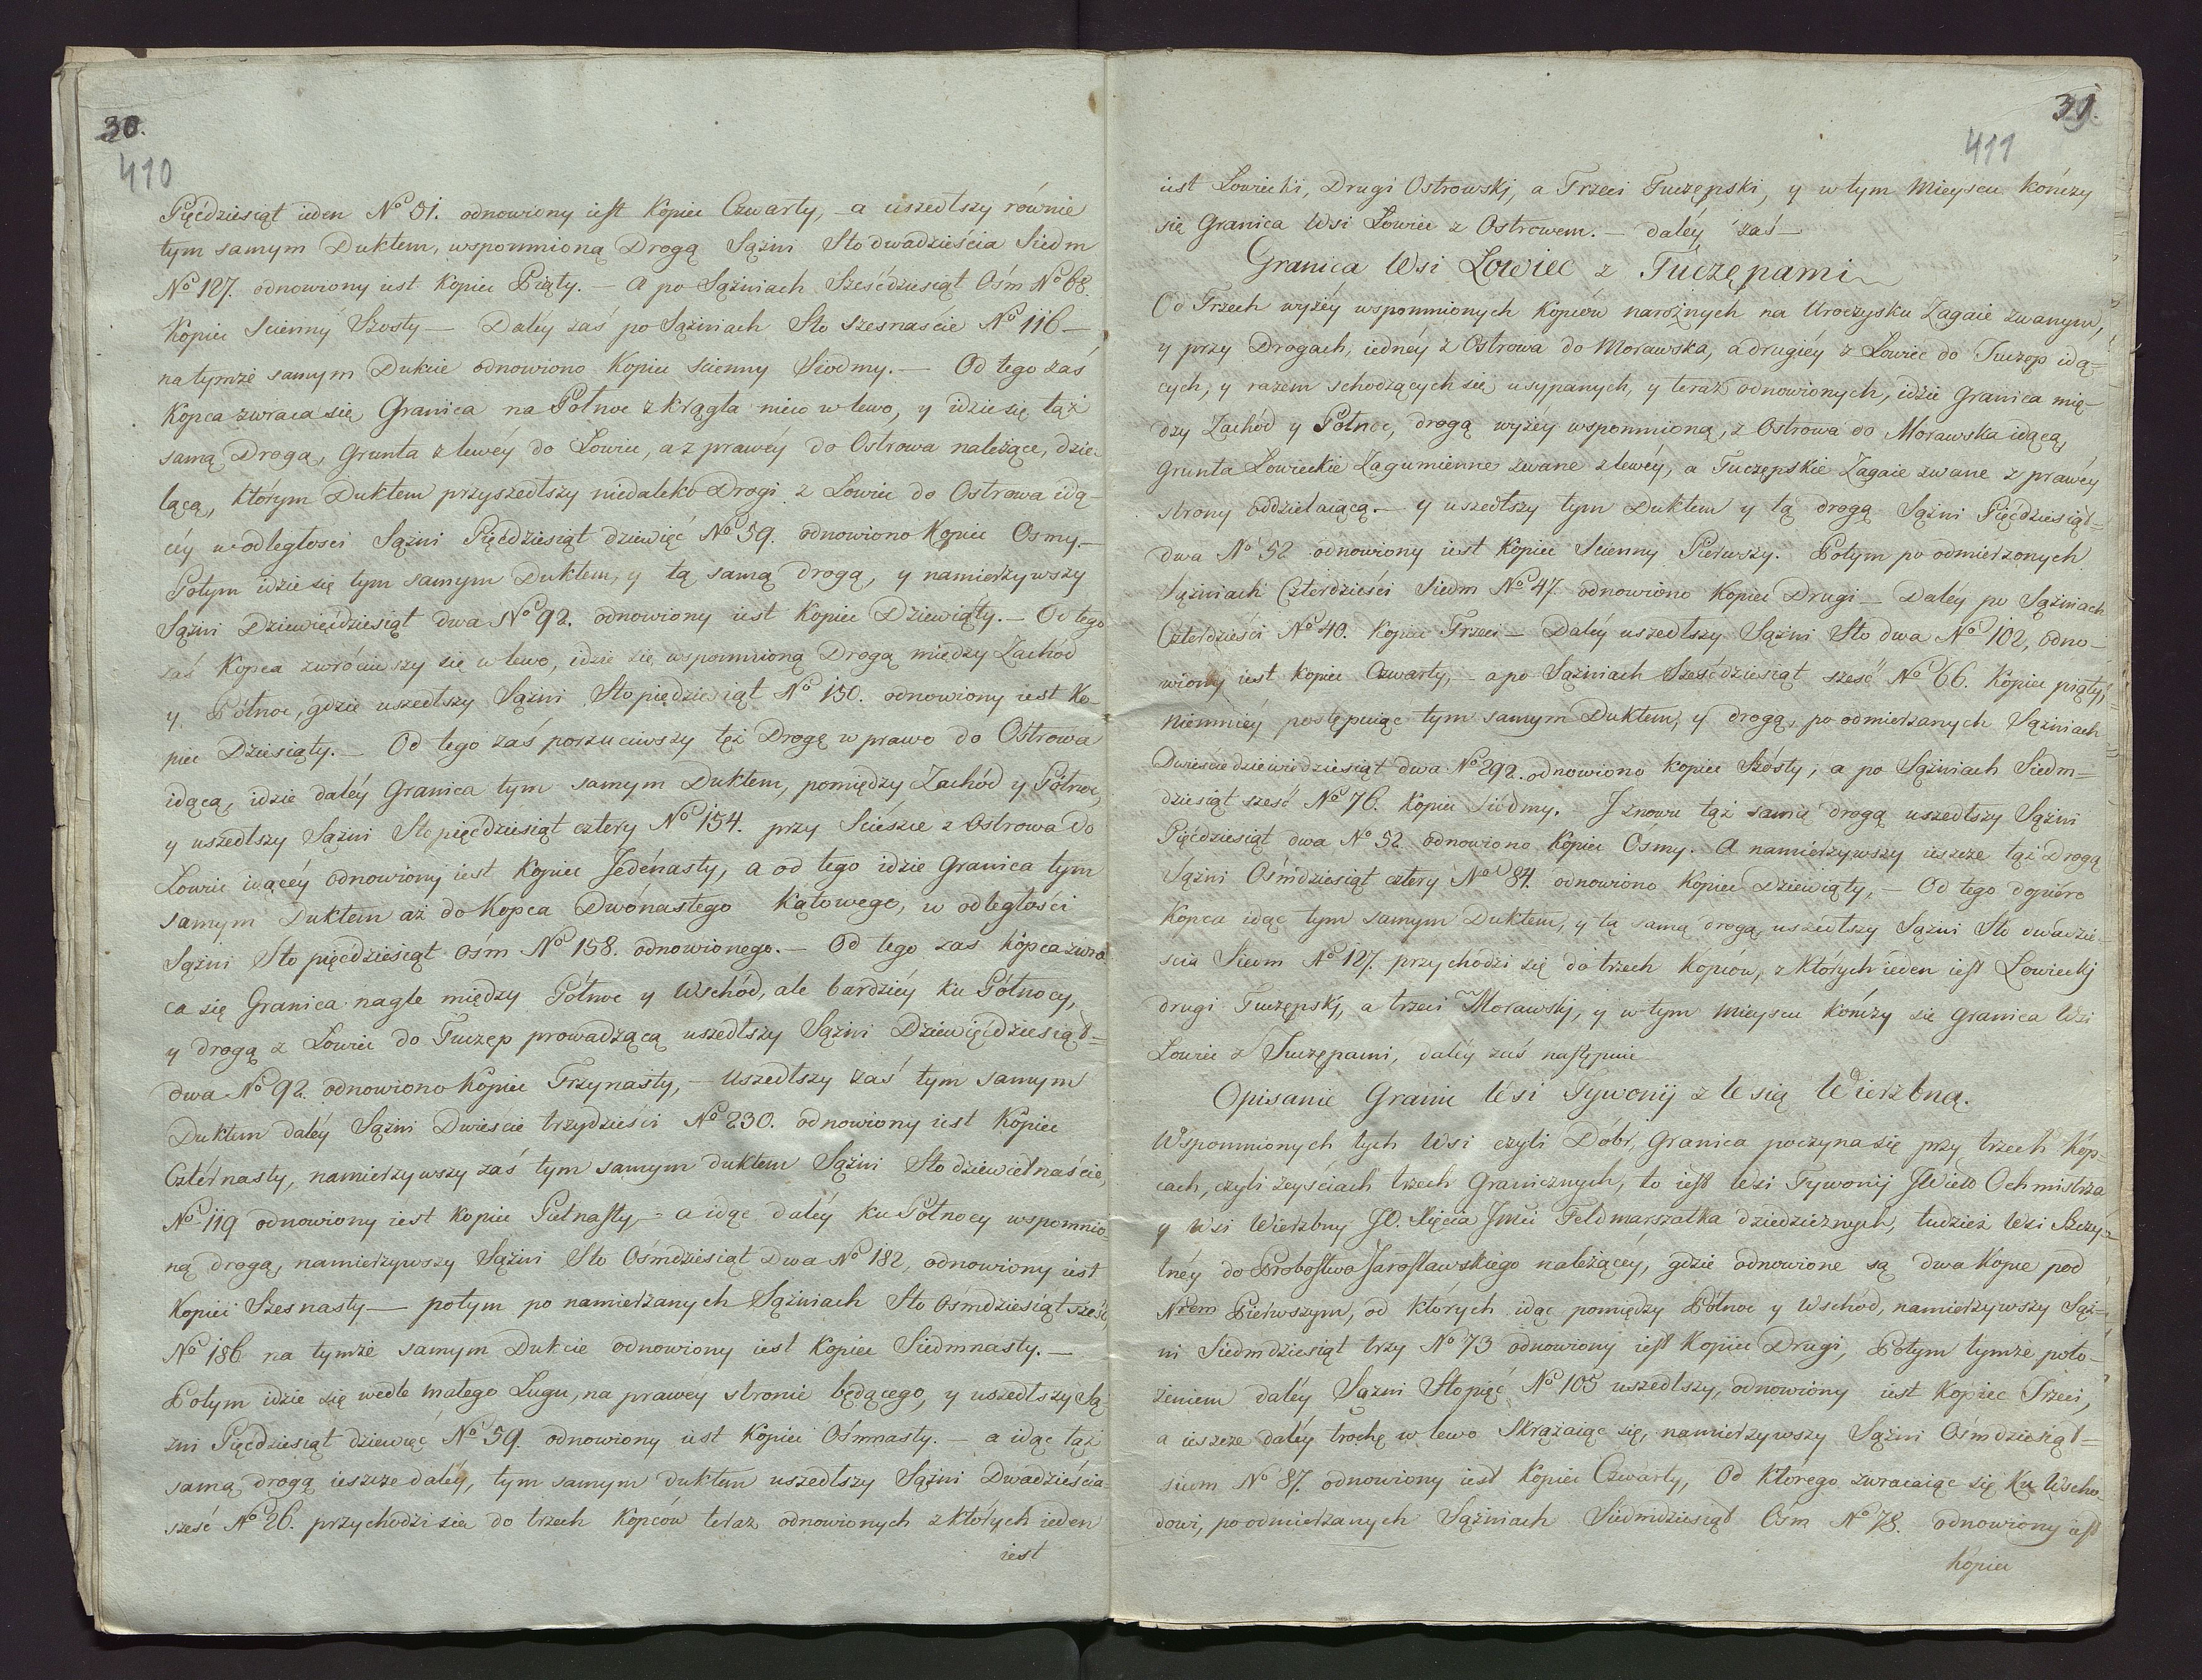 30.
410
Pięćdziesiąt ieden No 51. odnowiony iest Kopiec Czwarty, – a uszedłszy równie
tym samym Duktem, wspomnioną Drogą Sążni Sto dwadzieścia Siedm
No 127. odnowiony iest Kopiec Piąty. – A po Sążniach Sześćdziesiąt Ośm No 68.
Kopiec Scienny Szosty – Daléy zaś po Sążniach Sto szesnaście No 116 –
na tymże samym Dukcie odnowiono Kopiec scienny Siodmy. – Od tego zaś
Kopca zwraca się Granica na Połnoc z krągła nieco w lewo, y idzie się tąż
samą Drogą, Grunta z lewéy do Lowiec, a z prawéy do Ostrowa należące, dzie-
lącą, którym Duktem przyszedłszy niedaleko Drogi z Lowiec do Ostrowa idą-
céy w odległosci Sążni Pięćdziesiąt dziewięć No 59. odnowiono Kopiec Osmy. –
Potym idzie się tym samym Duktem, y tą samą drogą, y namierzywszy
Sążni Dziewięćdziesiąt dwa No 92. odnowiony iest Kopiec Dziewiąty. – Od tego
zaś Kopca zwróciwszy się w lewo, idzie się wspomnioną Drogą między Zachod
y Północ, gdzie uszedłszy Sążni Sto pięćdziesiąt No 150. odnowiony iest Ko-
piec Dziesiąty. – Od tego zaś porzuciwszy tęż Drogę w prawo do Ostrowa
idącą, idzie daléy Granica tym samym Duktem, pomiędzy Zachód y Północ,
y uszedłszy Sążni Sto pięćdziesiąt cztery No 154. przy Scieszce z Ostrowa do
Lowiec idącéy odnowiony iest Kopiec Jedenasty, a od tego idzie Granica tym
samym Duktem aż do Kopca Dwónastego Kątowego, w odległości
Sążni Sto pięćdziesiąt ośm No 158. odnowionego. – Od tego zas kopca zwra-
ca się Granica nagle między Północ y Wschód, ale bardziéy ku Północy,
y drogą z Lowiec do Tuczęp prowadzącą uszedłszy Sążni Dziewięćdziesiąt=
dwa No 92. odnowiono Kopiec Trzynasty, – uszedłszy zaś tym samym
Duktem daléy Sążni Dwieście trzydzieści No 230. odnowiony iest Kopiec
Czternasty, namierzywszy zaś tym samym duktem Sążni Sto dziewietnaście,
No 119 odnowiony iest Kopiec Pietnasty, – a idąc daléy ku Północy wspomnio-
ną drogą, namierzywszy Sążni Sto Ośmdziesiąt Dwa No 182, odnowiony iest
Kopiec Szesnasty – potym po namierzanych Sążniach Sto Ośmdziesiąt sześć,
No 186 na tymże samym Dukcie odnowiony iest Kopiec Siedmnasty. –
Potym idzie się wedle małego Lugu, na prawéy stronie będącego, y uszedłszy Są-
żni Pięćdziesiąt dziewięć No 59. odnowiony iest Kopiec Ośmnasty. – a idąc tąż
samą drogą ieszcze daléy, tym samym duktem uszedłszy Sążni Dwadzieścia
sześć No 26. przychodzi się do trzech Kopców teraz odnowionych z których ieden
iest
31.
411
iest Lowiecki, Drugi Ostrowski, a Trzeci Tuczępski, y w tym Mieyscu kończy
się Granica Wsi Lowiec z Ostrowem. – daléy zaś –
Granica Wsi Lowiec z Tuczępami
Od Trzech wyżéy wspomnionych Kopców narożnych na Uroczysku Zagaie zwanym,
y przy Drogach, iednéy z Ostrowa do Morawska, a drugiéy z Lowiec do Tuczęp idą-
cych, y razem schodzących się usypanych, y teraz odnowionych, idzie Granica mię-
dzy Zachód y Połnoc, drogą wyżéy wspomnioną, z Ostrowa do Morawska idącą,
grunta Lowieckie Zagumienne zwane z lewéy, a Tuczępskie Zagaie zwane z prawéy
strony oddzielaiącą. – y uszedłszy tym Duktem y tą drogą Sążni Pięćdziesiąt=
dwa No 52 odnowiony iest Kopiec Scienny Pierwszy. Potym po odmierzonych
Sążniach Czterdzieści Siedm No 47. odnowiono Kopiec Drugi – Daléy po Sążniach
Czterdzieści No 40. Kopiec Trzeci – Daléy uszedłszy Sążni Sto dwa No 102, odno-
wiony iest Kopiec Czwarty, – a po Sążniach Sześćdziesiąt sześć No 66. Kopiec piąty,
niemniéy postępuiąc tym samym Duktem, y drogą, po odmierzanych Sążniach
Dwieście dziewiędziesiąt dwa No 292. odnowiono Kopiec Szósty, a po Sążniach Siedm=
dziesiąt sześć No 76. Kopiec siódmy. I znowu tąż samą drogą uszedłszy Sążni
Pięćdziesiąt dwa No 52. odnowiono Kopiec Ósmy. A namierzywszy ieszcze tąż Drogą
Sążni Ośmdziesiąt cztery No 84. odnowiono Kopiec Dziewiąty, – Od tego dopiéro
Kopca idąc tym samym Duktem, y tą samą drogą uszedłszy Sążni Sto dwadzie-
scia Siedm No 127. przychodzi się do trzech Kopców, z których ieden iest Lowiecki
drugi Tuczępski, a trzeci Morawski, y w tym mieyscu kończy sie Granica Wsi
Lowiec z Tuczępami, daléy zaś następuie
Opisanie Granic Wsi Tywonij z Wsią Wierzbną.
Wspomnionych tych Wsi czyli Dóbr, Granica poczyna się przy trzech Kop-
cach, czyli zeyściach trzech Granicznych, to iest Wsi Tywonij JWielo Ochmistrza
y Wsi Wierzbny JO. Xięcia Jmci Feldmarszałka dziedzicznych, tudzież Wsi Szczy-
tnéy do Probostwa Jarosławskiego należącéy, gdzie odnowione są dwa Kopce pod
Nrem Pierwszym, od których idąc pomiędzy Północ y Wschód, namierzywszy Sąż=
ni Siedmdziesiąt trzy No 73 odnowiony iest Kopiec Drugi, Potym tymże poło-
żeniem daléy Sążni Sto pięć No 105 uszedłszy, odnowiony iest Kopiec Trzeci,
a ieszcze daléy trochę w lewo Skrążaiąc się, namierzywszy Sążni Ośmdziesiąt=
siedm No 87. odnowiony iest Kopiec Czwarty, Od którego zwracaiąc się ku Wscho-
dowi, po odmierzanych Sążniach Siedmdziesiąt Ośm No 78. odnowiony iest
Kopiec